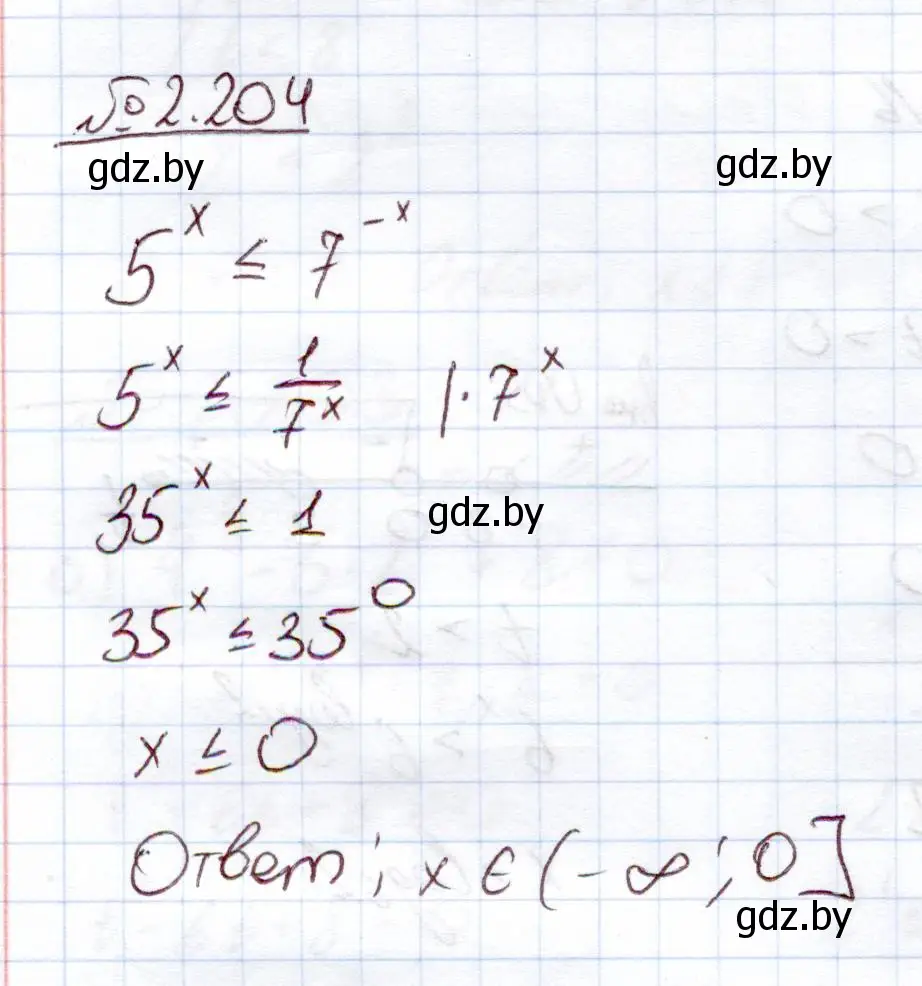 №2.204
gdz.by gdz.by
5^x ≤ 7^{-x}
5^x ≤ \frac{1}{7^x} |· 7^x
35^x ≤ 1
gdz.by
35^x ≤ 35^0
x ≤ 0
Ответ; x ∈ (-∞; 0]
gdz.by